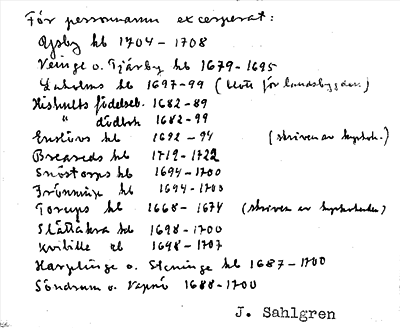 För personnamn excerperat:
Rysby kb 1704-1708
Veinge o. Tjärby kb 1679-1695
Laholms kb 1697-99 (blott för landsbygden)
Hishults födelseb. 1682-89
" dödbok 1682-99
Enslövs kb 1692-94 (skriven av kyrkoh.)
Breareds kb 1712-1722
Snöstorps kb 1694-1700
Trönninge kb 1694-1700
Torups kb 1668-1674 (skriven av kyrkoherden)
Slättåkra kb 1698-1700
Kvibille kb 1698-1707
Harplinge o. Steninge kb 1687-1700
Söndrum o. Vapnö 1688-1700
J. Sahlgren